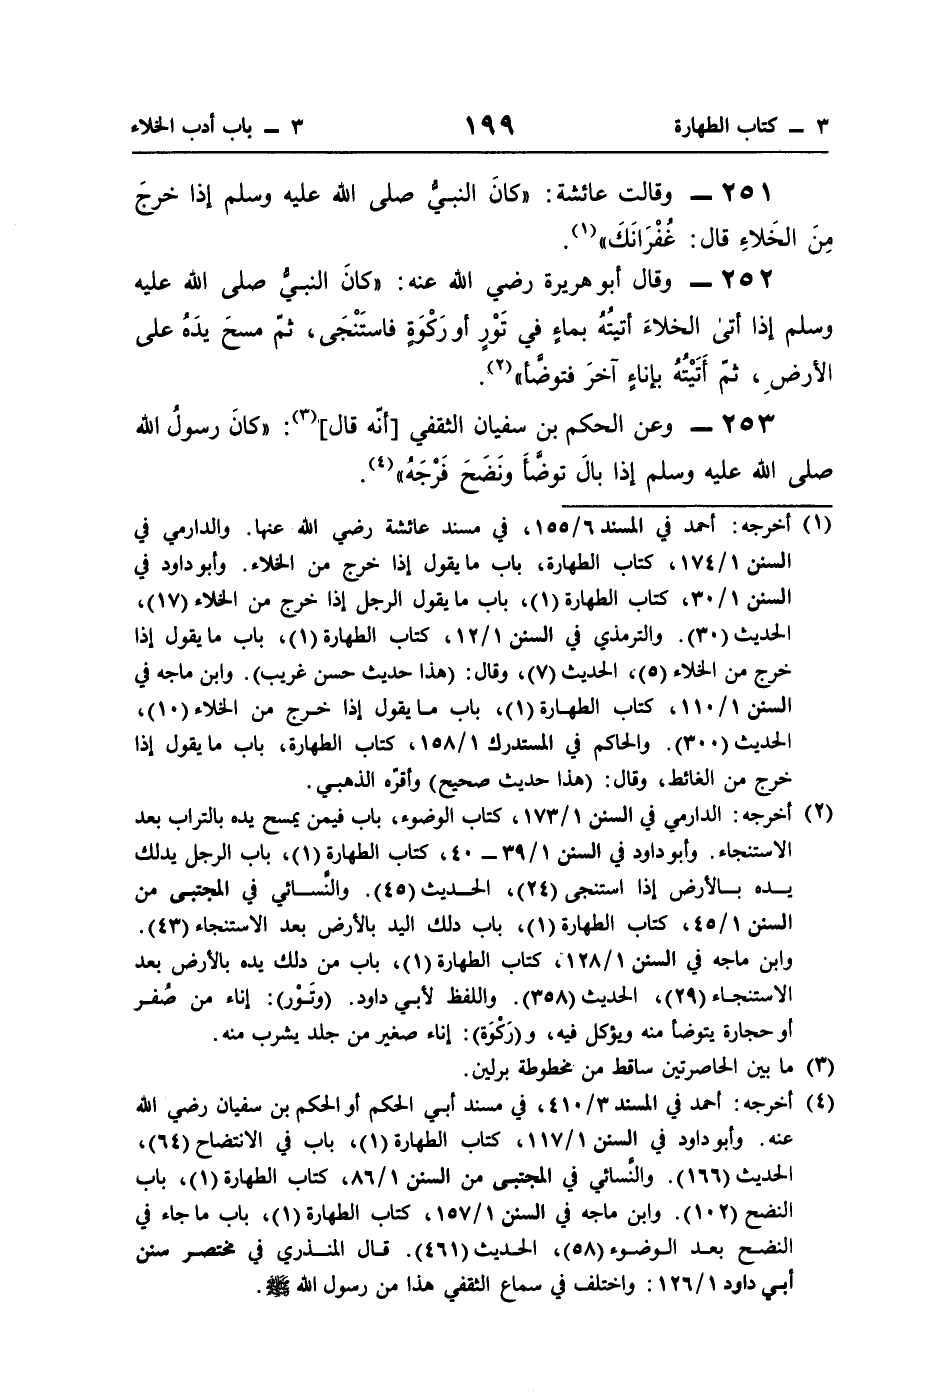 ٣ ــ كتاب الطهارة ١٩٩ ٣ ــ باب أدب الخلاء
٢٥١ ــ وقالت عائشة: «كانَ النبيُّ صلى الله عليه وسلم إذا خرجَ
مِنَ الخَلاءِ قال: غُفْرَانَكَ»(١).
٢٥٢ ــ وقال أبو هريرة رضي الله عنه: «كانَ النبيُّ صلى الله عليه
وسلم إذا أتىٰ الخلاءَ أتيتُهُ بماءٍ في تَوْرٍ أو رَكْوَةٍ فاستَنْجَى، ثمّ مسحَ يدَهُ على
الأرضِ، ثمّ أَتَيْتُهُ بإناءٍ آخرَ فتوضَّأ»(٢).
٢٥٣ ــ وعن الحكم بن سفيان الثقفي [أنّه قال](٣): «كانَ رسولُ الله
صلى الله عليه وسلم إذا بالَ توضَّأَ ونَضَحَ فَرْجَهُ»(٤).
(١) أخرجه: أحمد في المسند ٦/١٥٥، في مسند عائشة رضي الله عنها. والدارمي في
السنن ١/١٧٤، كتاب الطهارة، باب ما يقول إذا خرج من الخلاء. وأبو داود في
السنن ١/٣٠، كتاب الطهارة (١)، باب ما يقول الرجل إذا خرج من الخلاء (١٧)،
الحديث (٣٠). والترمذي في السنن ١/١٢، كتاب الطهارة (١)، باب ما يقول إذا
خرج من الخلاء (٥)، الحديث (٧)، وقال: (هذا حديث حسن غريب). وابن ماجه في
السنن ١/١١٠، كتاب الطهارة (١)، باب ما يقول إذا خرج من الخلاء (١٠)،
الحديث (٣٠٠). والحاكم في المستدرك ١/١٥٨، كتاب الطهارة، باب ما يقول إذا
خرج من الغائط، وقال: (هذا حديث صحيح) وأقرّه الذهبي.
(٢) أخرجه: الدارمي في السنن ١/١٧٣، كتاب الوضوء، باب فيمن يمسح يده بالتراب بعد
الاستنجاء. وأبو داود في السنن ١/٣٩ ــ ٤٠، كتاب الطهارة (١)، باب الرجل يدلك
يده بالأرض إذا استنجى (٢٤)، الحديث (٤٥). والنَّسائي في المجتبى من
السنن ١/٤٥، كتاب الطهارة (١)، باب دلك اليد بالأرض بعد الاستنجاء (٤٣).
وابن ماجه في السنن ١/١٢٨، كتاب الطهارة (١)، باب من دلك يده بالأرض بعد
الاستنجاء (٢٩)، الحديث (٣٥٨). واللفظ لأبي داود. (وتَوْر): إناء من صُفر
أو حجارة يتوضأ منه ويؤكل فيه، و (رَكْوَة): إناء صغير من جلد يشرب منه.
(٣) ما بين الحاصرتين ساقط من مخطوطة برلين.
(٤) أخرجه: أحمد في المسند ٣/٤١٠، في مسند أبي الحكم أو الحكم بن سفيان رضي الله
عنه. وأبو داود في السنن ١/١١٧، كتاب الطهارة (١)، باب في الانتضاح (٦٤)،
الحديث (١٦٦). والنَّسائي في المجتبى من السنن ١/٨٦، كتاب الطهارة (١)، باب
النضح (١٠٢). وابن ماجه في السنن ١/١٥٧، كتاب الطهارة (١)، باب ما جاء في
النضح بعد الوضوء (٥٨)، الحديث (٤٦١). قال المنذري في مختصر سنن
أبي داود ١/١٢٦: واختلف في سماع الثقفي هذا من رسول الله ﷺ.